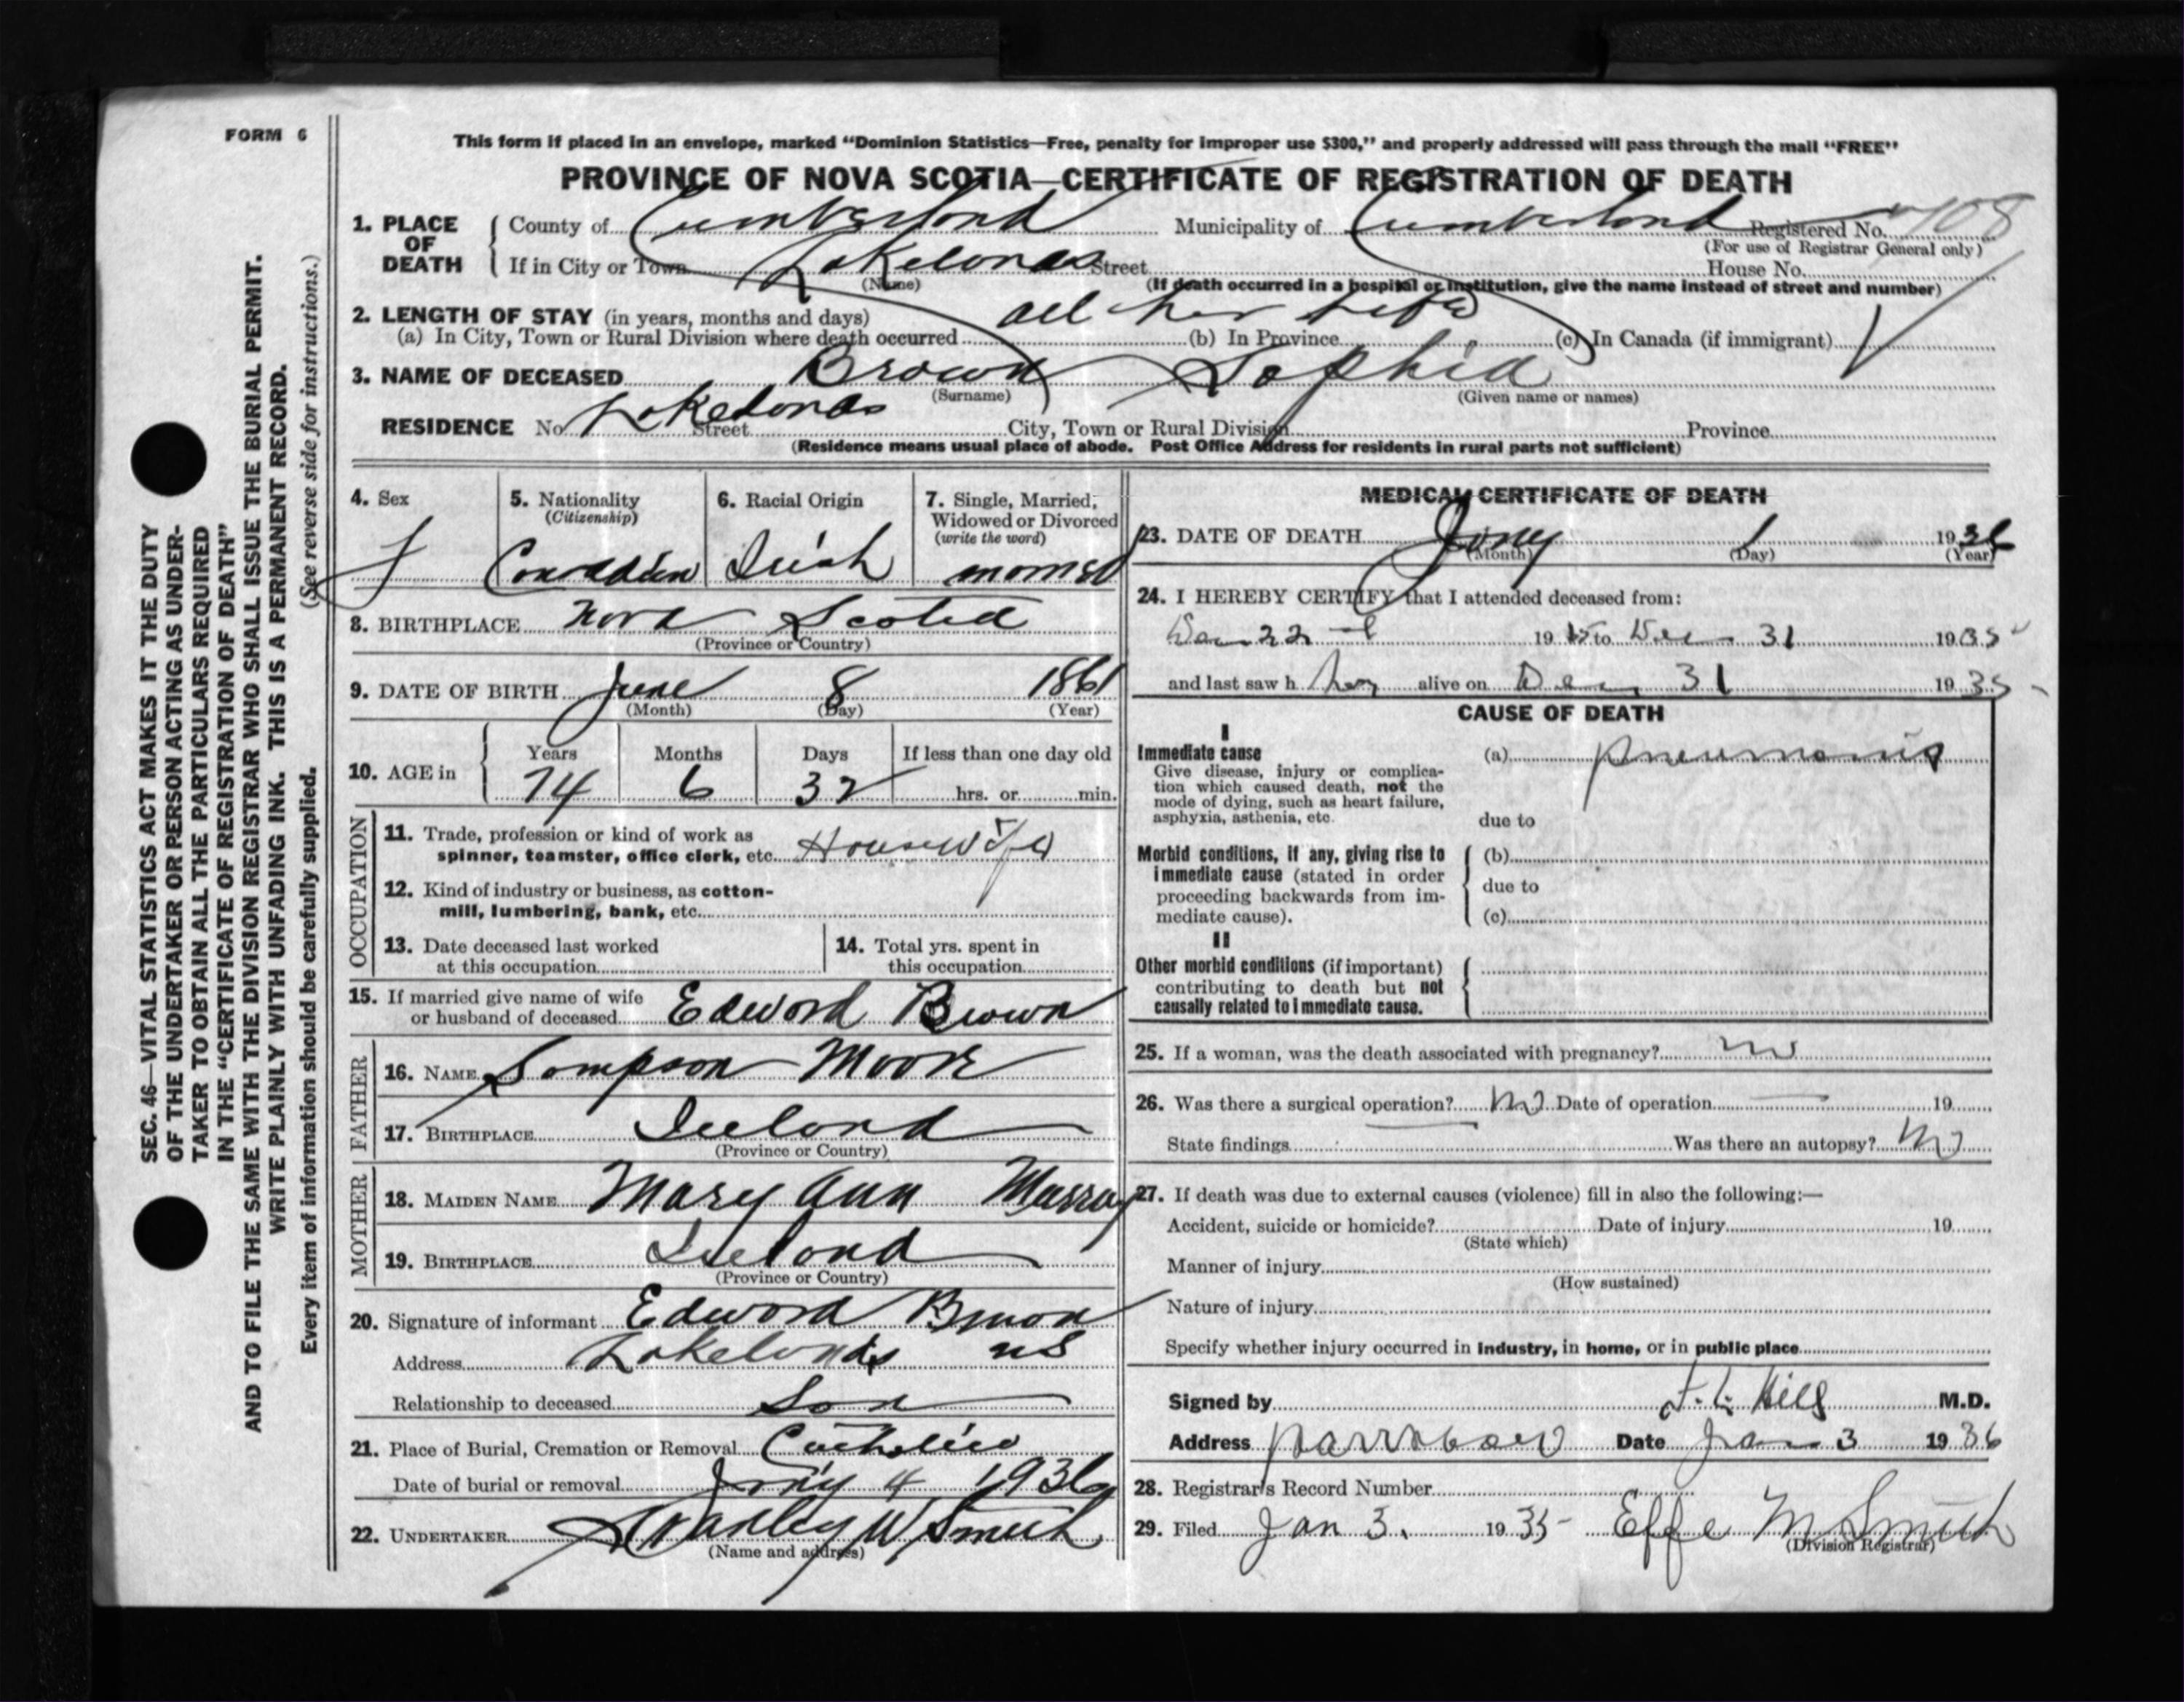 FORM 6
This form if placed in an envelope, marked "Dominion Statistics—Free, penalty for improper use $300," and properly addressed will pass through the mail "FREE"
PROVINCE OF NOVA SCOTIA—CERTIFICATE OF REGISTRATION OF DEATH
1. PLACE OF DEATH { County of Cumberland Municipality of Cumberland Registered No. 708
(For use of Registrar General only)
If in City or Town Lakelands Street House No.
(Name) (If death occurred in a hospital or institution, give the name instead of street and number)
2. LENGTH OF STAY (in years, months and days) all her life
(a) In City, Town or Rural Division where death occurred (b) In Province (c) In Canada (if immigrant)
3. NAME OF DECEASED Brown Sophia
(Surname) (Given name or names)
RESIDENCE No. Lakelands Street City, Town or Rural Division Province
(Residence means usual place of abode. Post Office Address for residents in rural parts not sufficient)
4. Sex 5. Nationality (Citizenship) 6. Racial Origin 7. Single, Married, Widowed or Divorced (write the word)
f Canadian Irish
8. BIRTHPLACE Nova Scotia
(Province or Country)
9. DATE OF BIRTH June 8 1861
(Month) (Day) (Year)
10. AGE in { Years Months Days If less than one day old
74 6 32 hrs. or min.
OCCUPATION
11. Trade, profession or kind of work as
spinner, teamster, office clerk, etc. Housewife
12. Kind of industry or business, as cotton-
mill, lumbering, bank, etc.
13. Date deceased last worked at this occupation 14. Total yrs. spent in this occupation
15. If married give name of wife
or husband of deceased Edward Brown
FATHER
16. NAME Sompson Moore
17. BIRTHPLACE Ireland
(Province or Country)
MOTHER
18. MAIDEN NAME Mary Ann Murray
19. BIRTHPLACE Ireland
(Province or Country)
20. Signature of informant Edward Brown
Address Lakelands NS
Relationship to deceased Son
21. Place of Burial, Cremation or Removal
Date of burial or removal Jany 4 1936
22. UNDERTAKER W Smith
(Name and address)
MEDICAL CERTIFICATE OF DEATH
23. DATE OF DEATH Jany 1 1936
(Month) (Day) (Year)
24. I HEREBY CERTIFY that I attended deceased from:
Dec 22 19 to Dec 31 1935
and last saw h her alive on Dec 31 1935
CAUSE OF DEATH
I
Immediate cause (a) pneumonia
Give disease, injury or complica-
tion which caused death, not the
mode of dying, such as heart failure,
asphyxia, asthenia, etc. due to
Morbid conditions, if any, giving rise to (b)
immediate cause (stated in order due to
proceeding backwards from im-
mediate cause). (c)
II
Other morbid conditions (if important)
contributing to death but not
causally related to immediate cause.
25. If a woman, was the death associated with pregnancy? no
26. Was there a surgical operation? no Date of operation — 19
State findings Was there an autopsy? no
27. If death was due to external causes (violence) fill in also the following:—
Accident, suicide or homicide? Date of injury 19
(State which)
Manner of injury
(How sustained)
Nature of injury
Specify whether injury occurred in industry, in home, or in public place
Signed by Hill M.D.
Address Parrsboro Date Jan 3 1936
28. Registrar's Record Number
29. Filed Jan 3. 1935 Effe M Smith
(Division Registrar)
SEC. 46—VITAL STATISTICS ACT MAKES IT THE DUTY
OF THE UNDERTAKER OR PERSON ACTING AS UNDER-
TAKER TO OBTAIN ALL THE PARTICULARS REQUIRED
IN THE "CERTIFICATE OF REGISTRATION OF DEATH"
AND TO FILE THE SAME WITH THE DIVISION REGISTRAR WHO SHALL ISSUE THE BURIAL PERMIT.
WRITE PLAINLY WITH UNFADING INK. THIS IS A PERMANENT RECORD.
Every item of information should be carefully supplied. (See reverse side for instructions.)